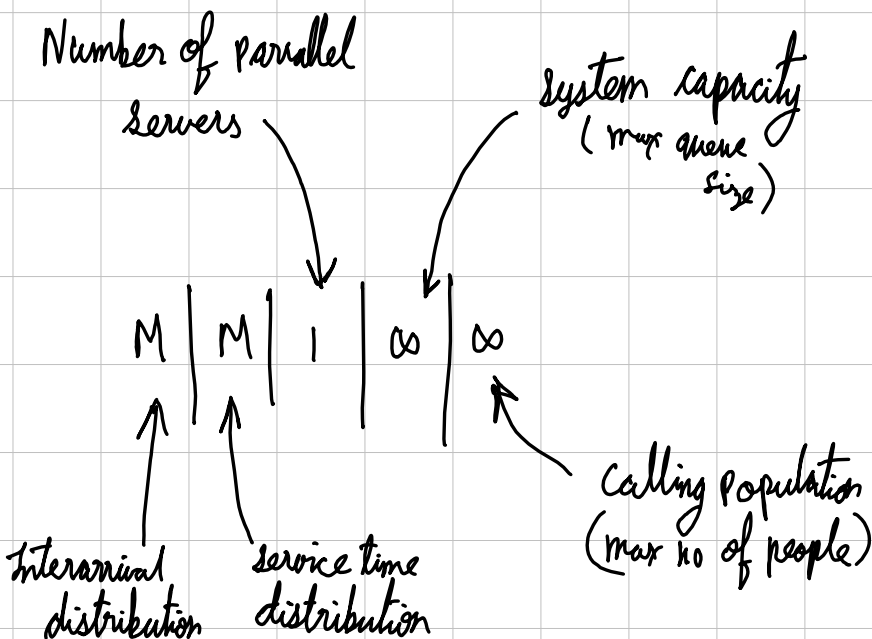 Number of parallel
servers
system capacity
(max queue
size)
M | M | 1 | ∞ | ∞
Interarrival
distribution
service time
distribution
Calling population
(max no of people)